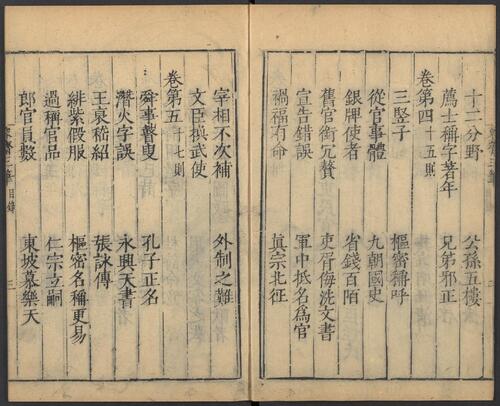 十二分野 公孫五樓
薦士稱字著年 兄弟邪正
卷第四 十五則
三豎子 樞密稱呼
從官事體 九朝國史
銀牌使者 省錢百陌
舊官銜冗贅 吏胥侮洗文書
宣告錯誤 軍中抵名爲官
禍福有命 眞宗北征
宰相不次補 外制之難
文臣換武使
卷第五 十七則
舜事瞽叟 孔子正名
潛火字誤 永興天書
王裒嵇紹 張詠傳
緋紫假服 樞密名稱更易
過稱官品 仁宗立嗣
郎官員數 東坡慕樂天
三筆 目錄 三